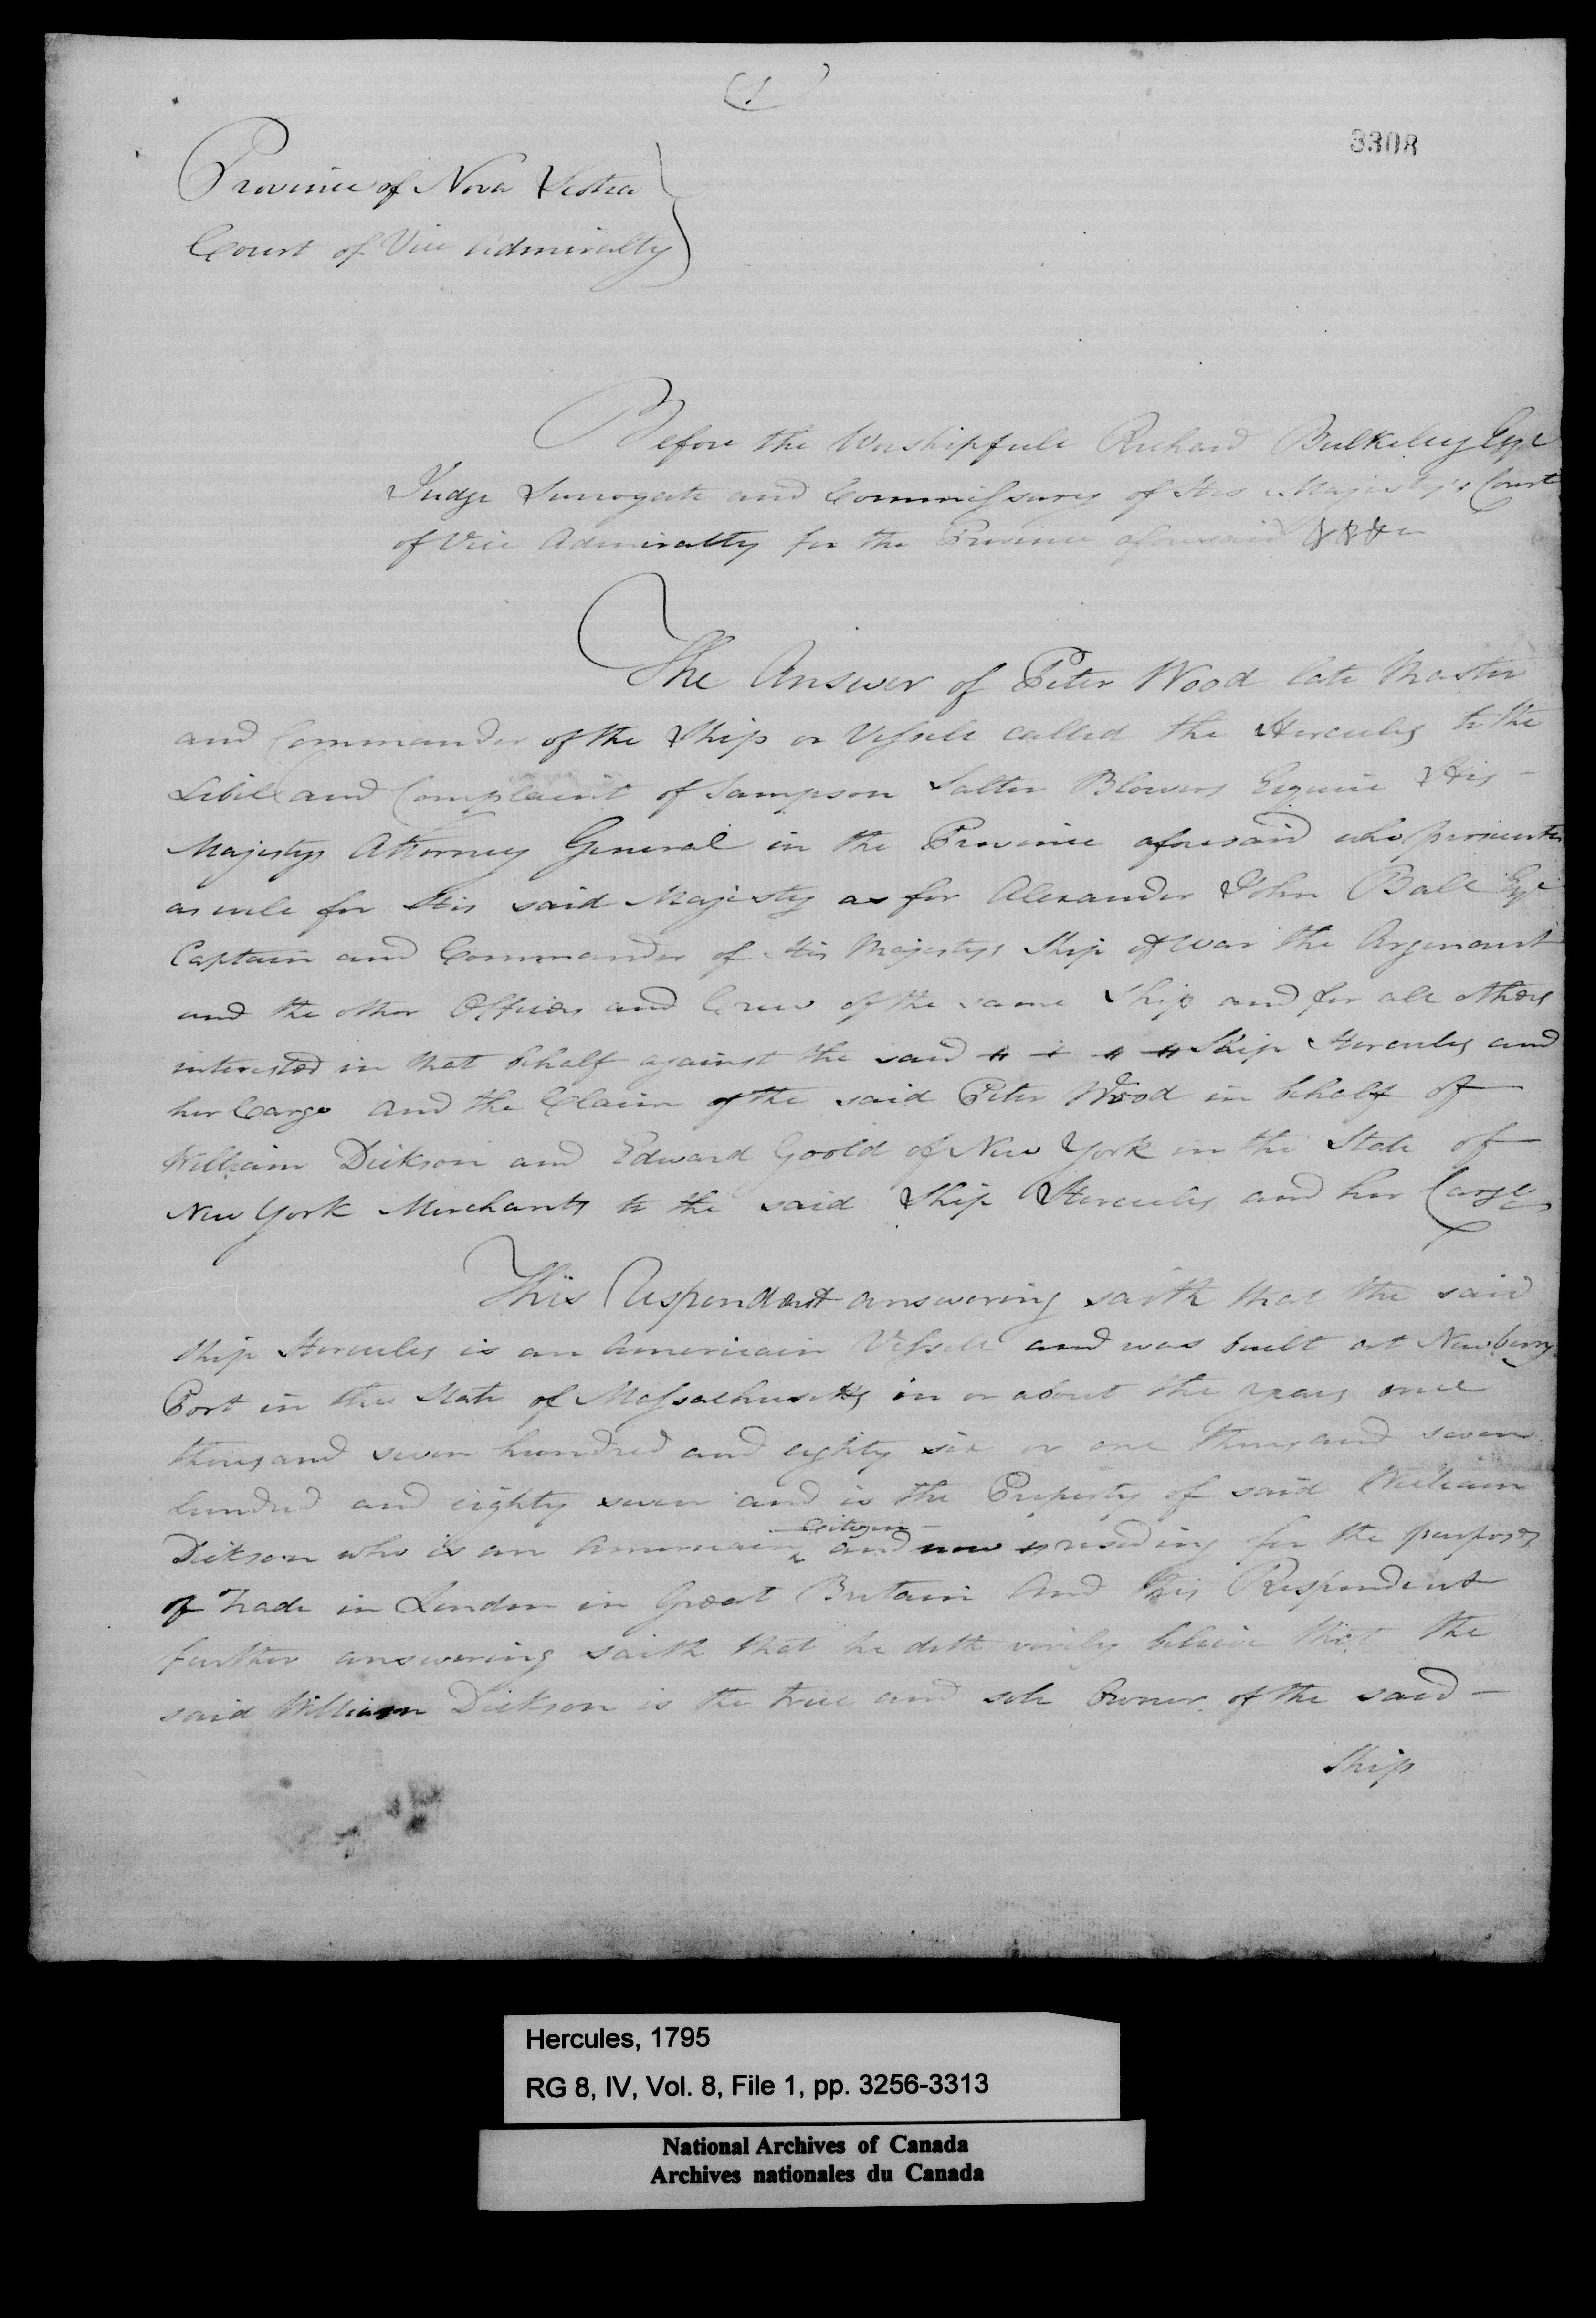 (1)
3308
Province of Nova Scotia
Court of Vice Admiralty
Before the Worshipfull Richard Bulkeley Esqr
Judge Surrogate and Commissary of His Majesty's Court
of Vice Admiralty for the Province aforesaid &&&c
The Answer of Peter Wood late Master
and Commander of the Ship or Vessell called the Hercules to the
Libel and Complaint of Sampson Salter Blowers Esquire His
Majestys Attorney General in the Province aforesaid who prosecutes
as well for His said Majesty as for Alexander John Ball Esqr
Captain and Commander of His Majestys Ship of War the Argonaut
and the other Officers and Crew of the same Ship and for all others
interested in that behalf against the said Ship Hercules and
her Cargo and the Claim of the said Peter Wood in behalf of
William Dickson and Edward Goold of New York in the State of
New York Merchants to the said Ship Hercules and her Cargo
This Respondent answering saith that the said
Ship Hercules is an Americain Vessell and was built at Newberry
Port in the State of Massachusetts in or about the years one
thousand seven hundred and eighty six or one thousand seven
hundred and eighty seven and is the Property of said William
Dickson who is an Americain citizen and now residing for the purposes
of Trade in London in Great Britain And this Respondent
further answering saith that he doth verily believe that the
said William Dickson is the true and sole Owner of the said
Ship
Hercules, 1795
RG 8, IV, Vol. 8, File 1, pp. 3256-3313
National Archives of Canada
Archives nationales du Canada